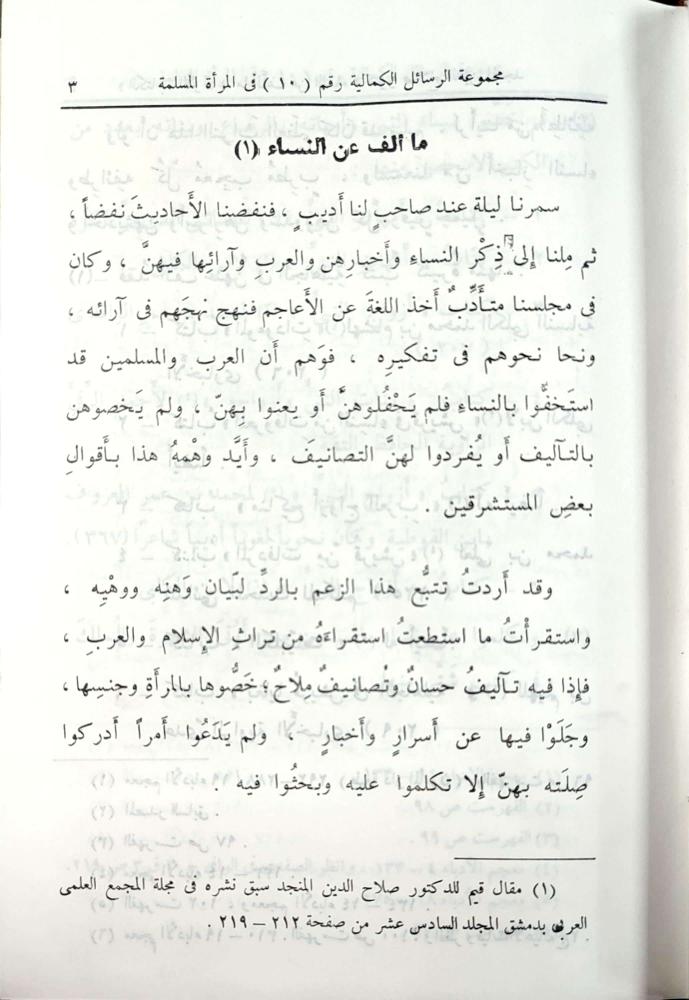 مجموعة الرسائل الكمالية رقم ( ١٠ ) فى المرأة المسلمة ٣
ما ألف عن النساء (١)
سمرنا ليلة عند صاحبٍ لنا أديبٍ ، فنفضنا الأَحاديثَ نفضاً ،
ثم مِلنا إِلى ذِكْرِ النساءِ وأَخبارِهن والعربِ وآرائِها فيهنَّ ، وكان
فى مجلسنا متأَدِّبٌ أَخذ اللغةَ عن الأَعاجم فنهج نهجَهم فى آرائه ،
ونحا نحوهم فى تفكيرِه ، فوَهم أَن العرب والمسلمين قد
استَخفُّوا بالنساءِ فلم يَحْفُلوهنَّ أَو يعنوا بِهنّ ، ولم يَخصوهن
بالتـآليف أَو يُفـردوا لهنَّ التصانيفَ ، وأَيَّد وهْمهُ هذا بـأَقوالِ
بعضِ المستشرقين .
وقد أَردتُ تتبُّع هذا الزعم بالردِّ لبَيان وَهنِه ووهْيِه ،
واستقرأْتُ ما استطعتُ استقراءَهُ من تراثِ الإِسلام والعربِ ،
فإِذا فيه تـآليفُ حسانٌ وتُصانيفٌ مِلاحٌ؛ خَصُّوها بالمرأَةِ وجنسِها ،
وجَلَوْا فيها عن أَسرارٍ وأَخبارٍ ، ولم يَدَعُوا أَمراً أَدركوا
صِلَته بهنّ إِلا تكلموا عليه وبحثُوا فيه .
(١) مقال قيم للدكتور صلاح الدين المنجد سبق نشره فى مجلة المجمع العلمى
العربى بدمشق المجلد السادس عشر من صفحة ٢١٢ – ٢١٩ .